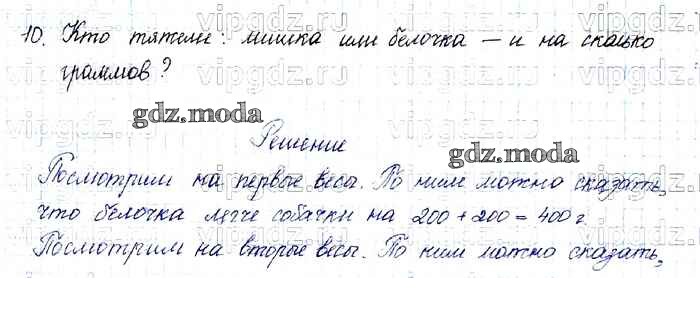 10. Кто тяжелее: мишка или белочка – и на сколько
граммов?
gdz.moda
Решение
gdz.moda
Посмотрим на первые весы. По ним можно сказать,
что белочка легче собачки на 200 + 200 = 400 г.
Посмотрим на вторые весы. По ним можно сказать,